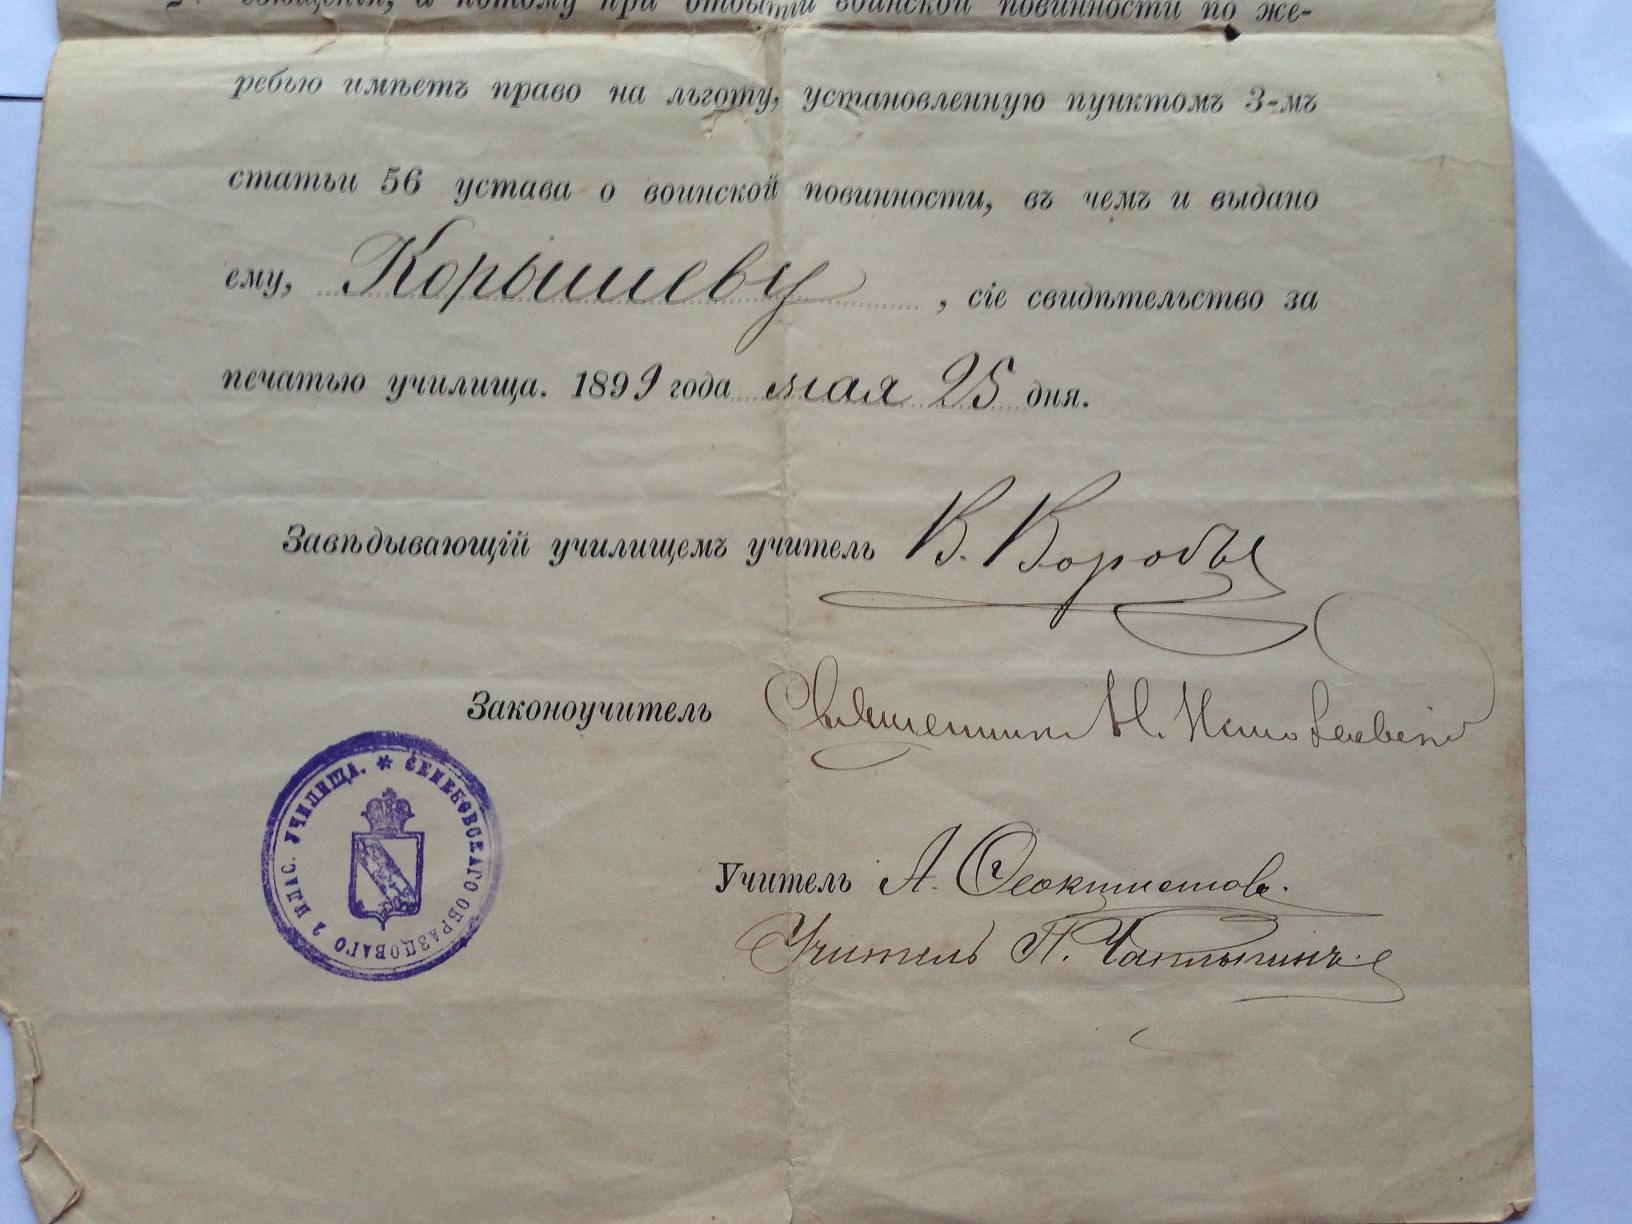 а потому при отбытіи воинской повинности по же-
ребью имѣетъ право на льготу, установленную пунктомъ 3-мъ
статьи 56 устава о воинской повинности, въ чемъ и выдано
ему, Корышеву, сіе свидѣтельство за
печатью училища. 1899 года мая 25 дня.
Завѣдывающій училищемъ учитель В.
Законоучитель Священникъ Н.
Учитель А. Ѳеоктистовъ.
Учитель П.
ОБРАЗЦОВАГО 2 КЛАС. УЧИЛИЩА. *